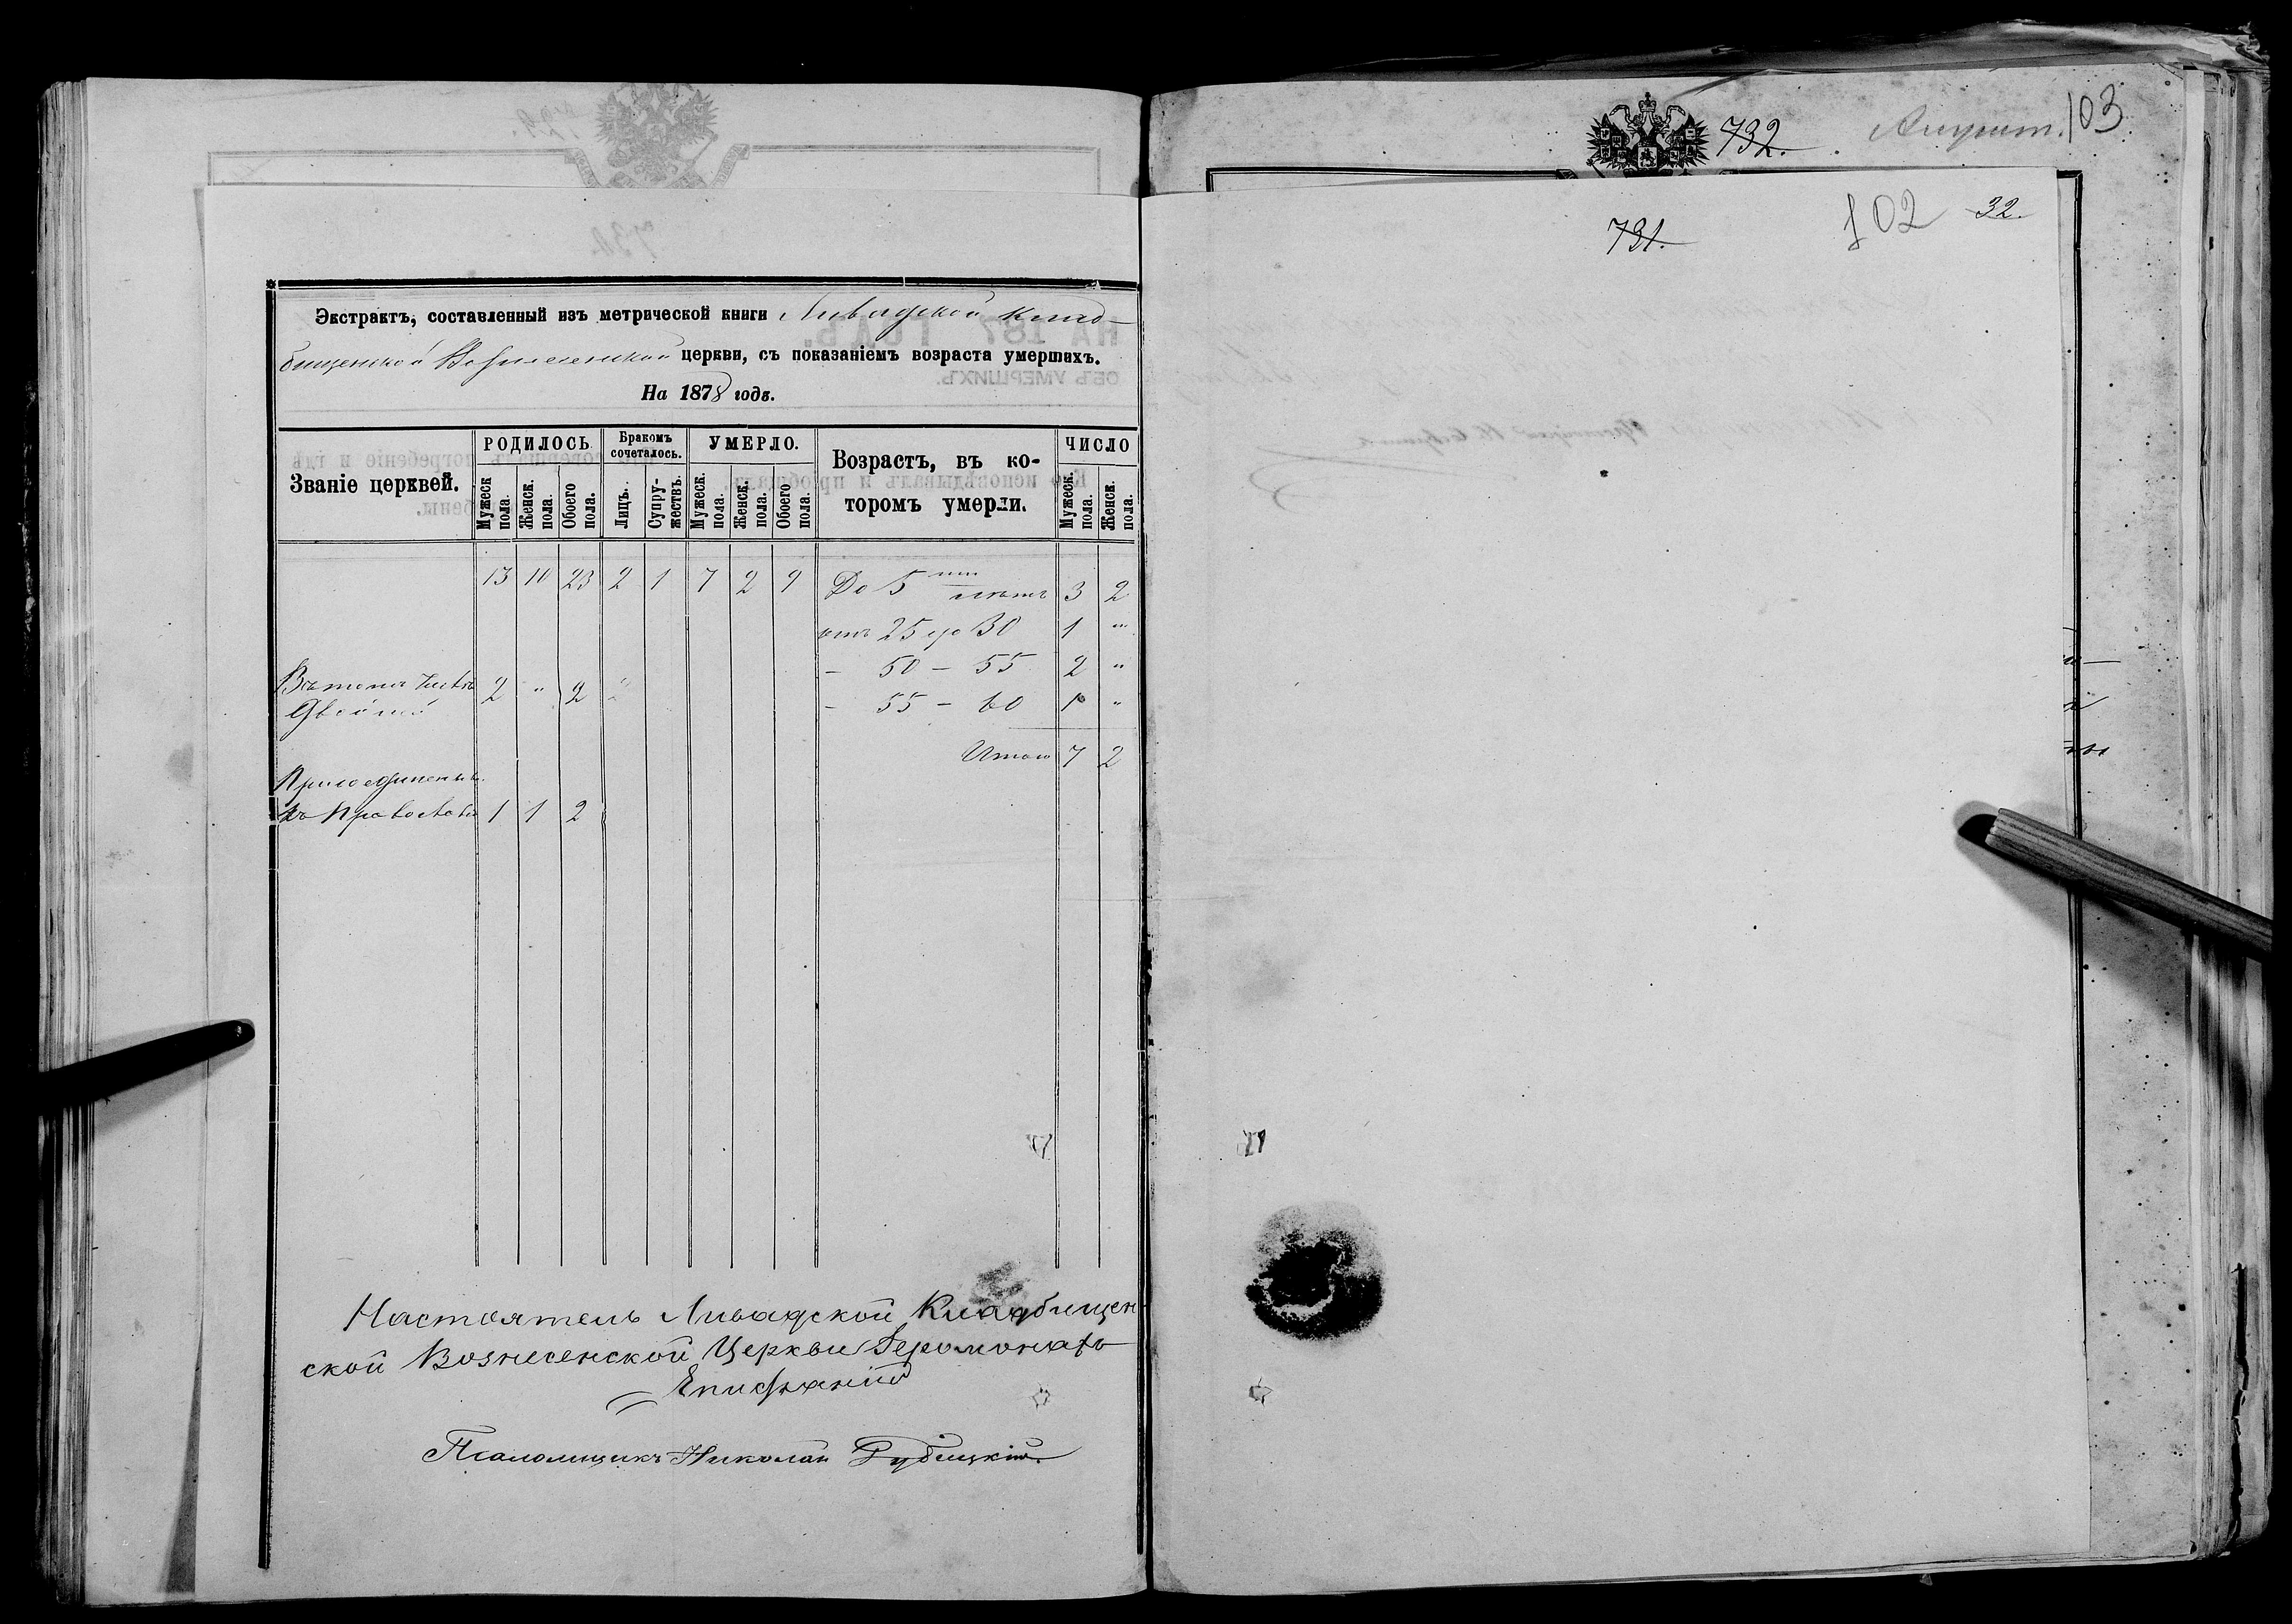 Экстрактъ, составленный изъ метрической книги Ливадской клад-
бищенской Вознесенской церкви, съ показаніемъ возраста умершихъ.
На 1878 годъ.
Званіе церквей.
РОДИЛОСЬ
Мужеск пола.
Женск. пола.
Обоего пола.
Бракомъ сочеталось.
Лицъ.
Супру-жествъ.
УМЕРЛО.
Мужеск. пола.
Женск. пола.
Обоего пола.
Возрастъ, въ ко-
торомъ умерли.
ЧИСЛО
Мужеск. пола.
Женск. пола.
13 10 23 2 1 7 2 9 До 5 ти лѣтъ 3 2
отъ 25 до 30 1 "
- 50 - 55 2 "
Въ томъ числѣ 2 " 2
двойни
- 55 - 60 1 "
Итого 7 2
Присоединены
къ Православію 1 1 2
Настоятель Ливадской Кладбищен-
ской Вознесенской Церкви Іеромонахъ
Епифаній
Псаломщикъ Николай
732.
103
731.
102
32.